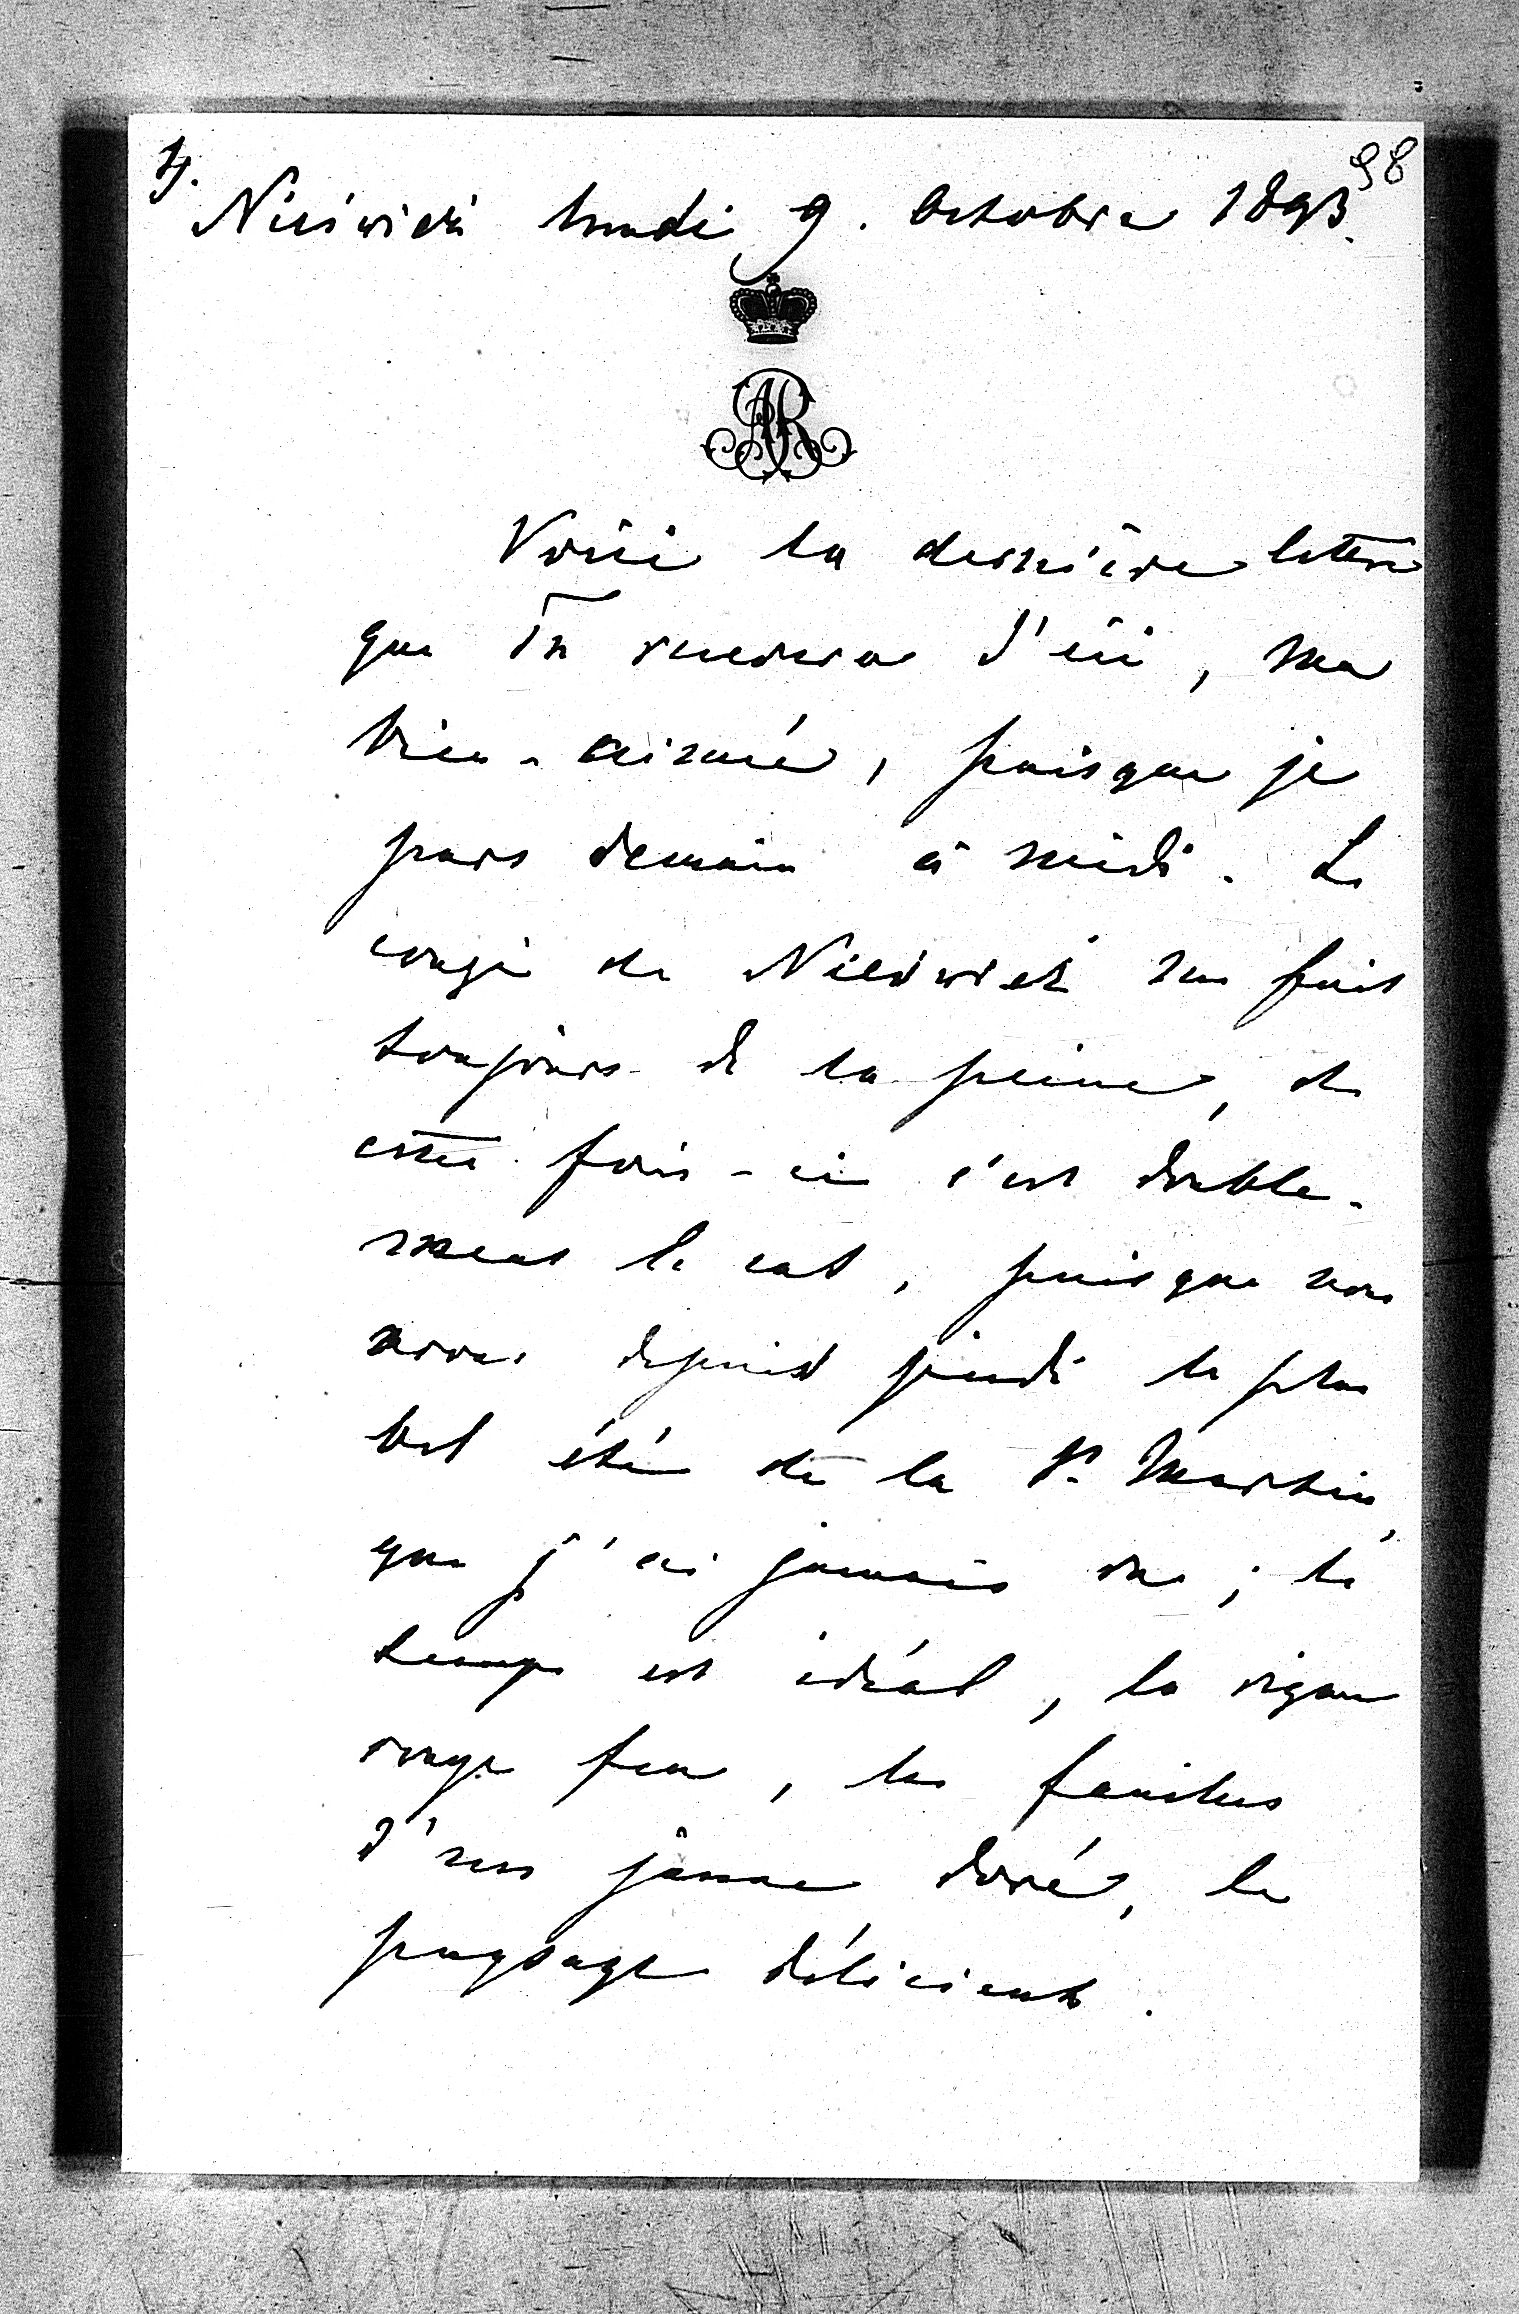 4.
98
Nieśwież lundi 9. Octobre 1893.
AR
Voici la dernière lettre
que Tu recevras d'ici, ma
bien-aimée, puisque je
pars demain à midi. Le
congé de Nieśwież me fait
toujours de la peine, et
cette fois-ci c'est double-
ment le cas, puisque nous
avons depuis jeudi le plus
bel été de la St. Martin,
que j'ai jamais vu; le
temps est idéal, la vigne
rouge feu, les feuilles
d'un jaune doré, le
paysage délicieux.